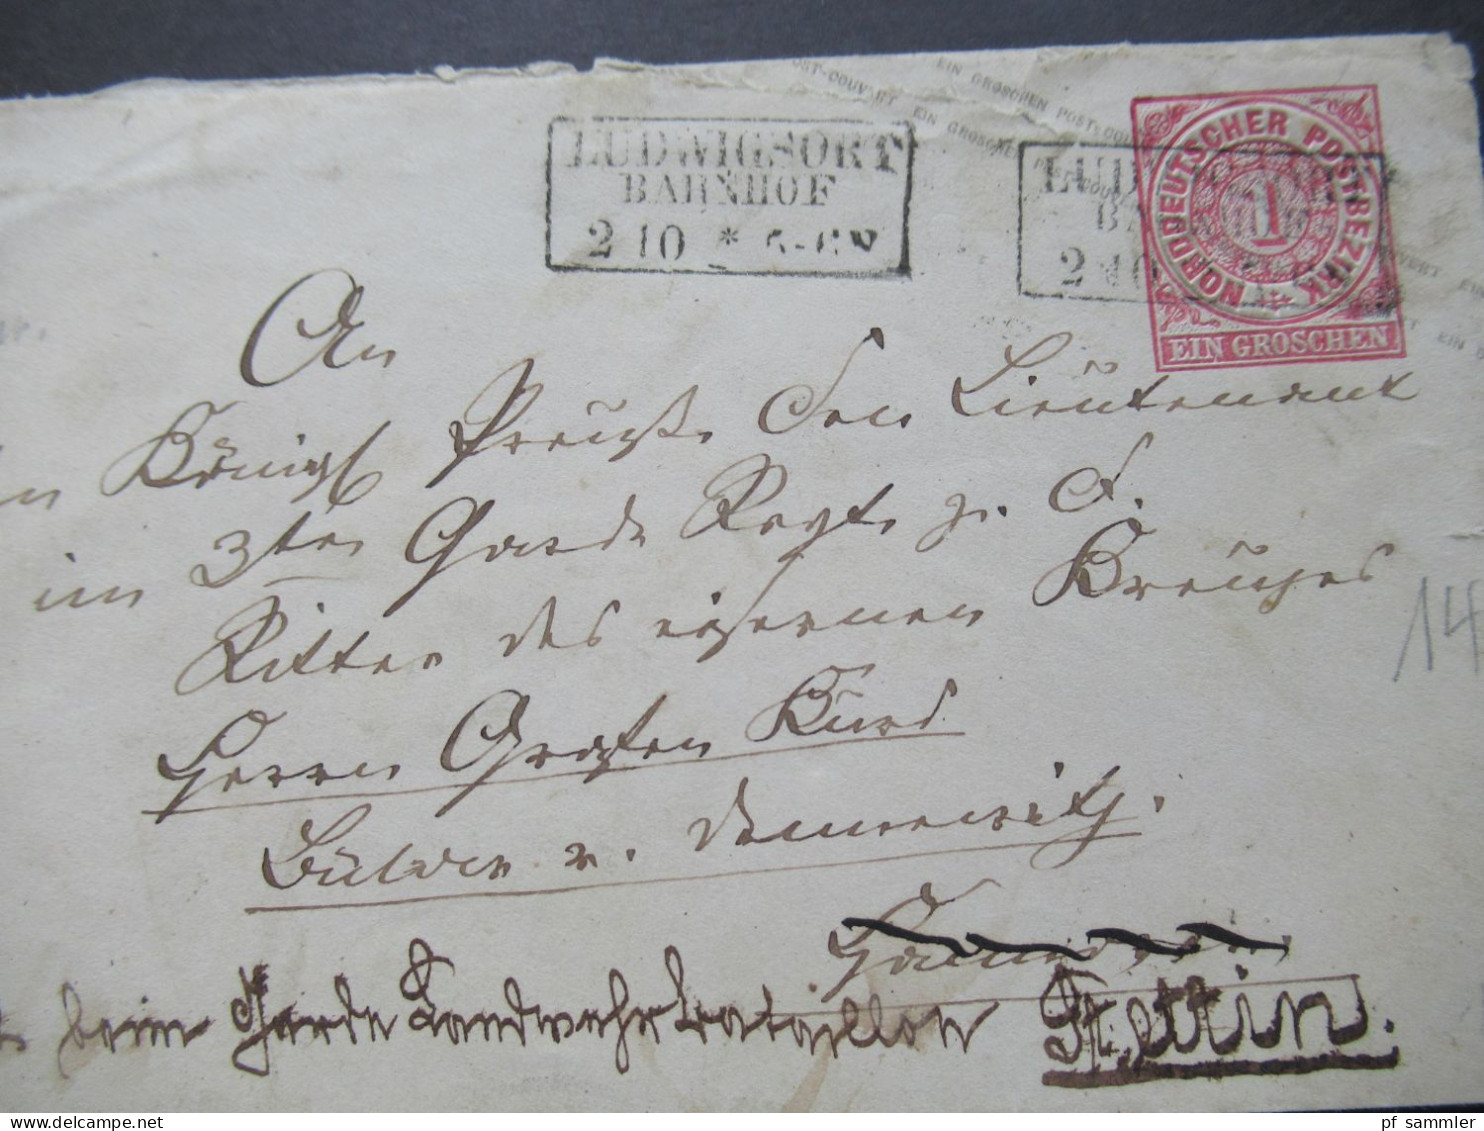 EIN GROSCHEN POST-COUVERT EIN GROSCHEN POST-COUVERT
LUDWIGSORT
BAHNHOF
2 10 * 5-6 N
LUD
BA
2 10
NORDDEUTSCHER POSTBEZIRK
1
EIN GROSCHEN
An
Königl Preuß. Sec Lieutenant
im 3ten Garde Regt. z. F.
Ritter des eisernen Kreuzes
Herrn Grafen Kurd
Bülow v. Dennewitz.
beim Garde Landwehr Bataillon Stettin.
14
pf_sammler